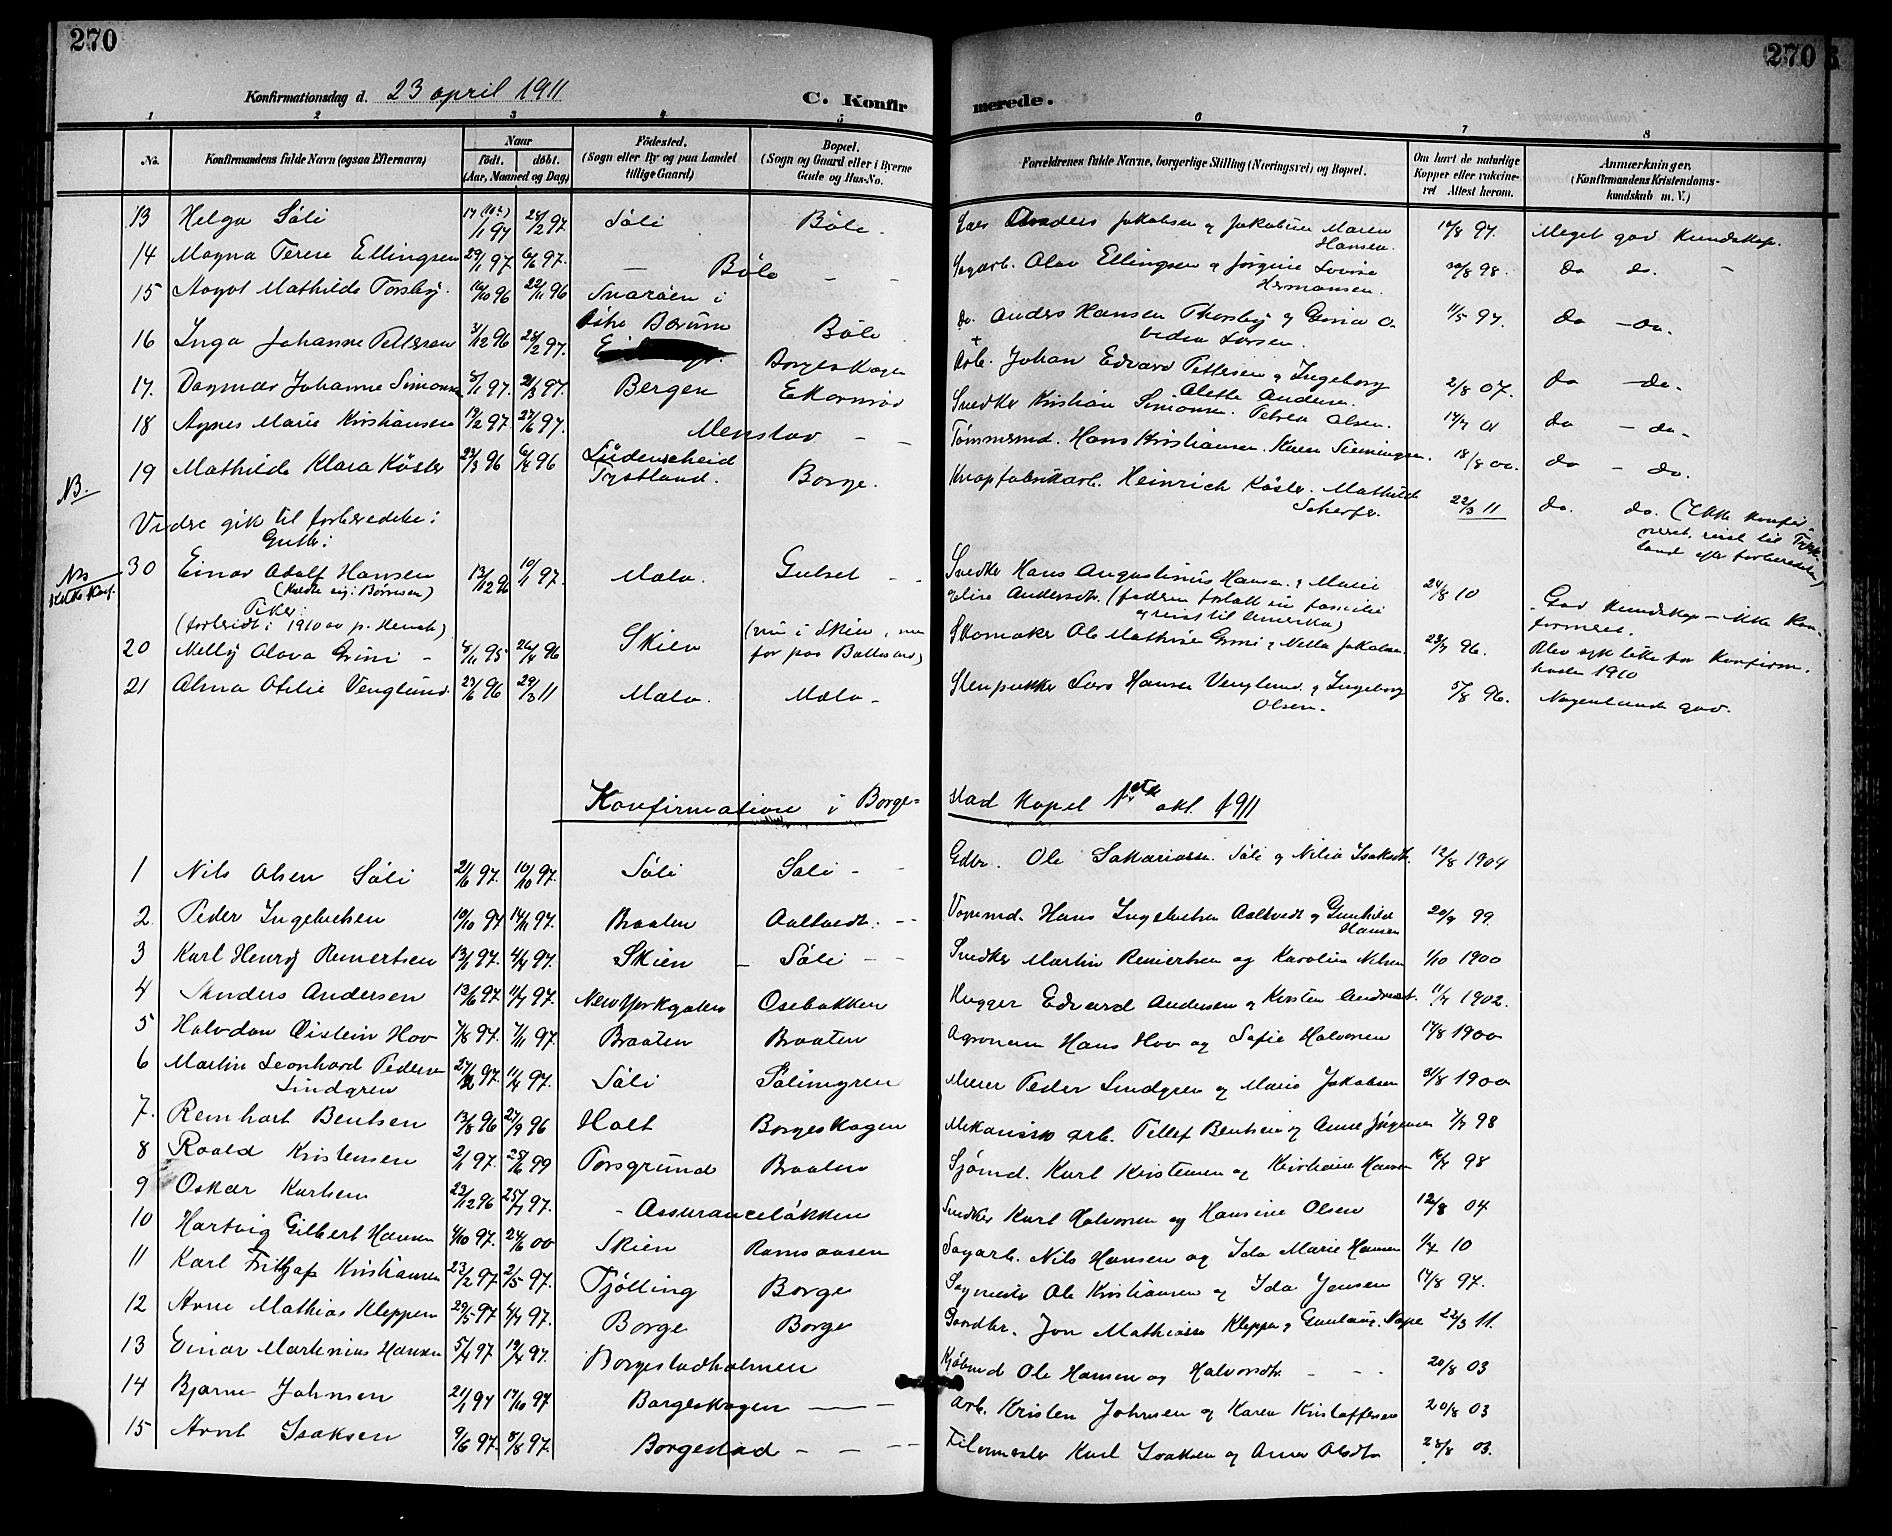 270
270
Konfirmationsdag d. 23 april 1911
C. Konfirmerede.
1 2 3 4 5 6 7 8
No. Konfirmandens fulde Navn (ogsaa Efternavn) Naar født. døbt. (Aar, Maaned og Dag) Födested. (Sogn eller By og paa Landet tillige Gaard) Bopæl. (Sogn og Gaard eller i Byerne Gade og Hus-No. Forældrenes fulde Navne, borgerlige Stilling (Næringsvei) og Bopæl. Om havt de naturlige Kopper eller vakcineret Attest herom. Anmærkninger. (Konfirmandens Kristendomskundskab m. V.)
13 Helga Søli Søli Bøle Anders Jakobsen og Jakobine Maren Hansen 97. Meget god Kundskap.
14 Magna Terese Ellingsen 29/1 97 6/6 97. Bøle Sagarb. Olav Ellingsen og Jørgine Lovise Hermansen. 98. do do.
15 Aagot Mathilde Torsby 96 22/11 96 Snarøen i Østre Bærum Bøle do. Anders Hansen Thorsby og 11/5 97. do do.
16 Inga Johanne Pettersen 3/12 96 28/2 97. Borgeskogen Arb. Johan Edvard Pettersen og Ingeborg Olette Andersen. 2/8 07. do do.
17. Dagmar Johanne Simonsen 97. 21/3 97. Bergen Ekornrød Snedker Kristian Simonsen. Petrea Olsen. 01 do do.
18 Agnes Marie Kristiansen 97 97. Menstad Tømmermd. Hans Kristiansen. Karen 18/8 00. do do.
19 Mathilde Klara Köster 23/3 96 6/4 96 Lüdenscheid Tyskland. Borge. Knapfabrikarb. Heinrich Köster. Mathilde Scherfer. 22/3 11 do. do. (Ikke konfirmeret. reist til Tyskland efter forberedelse)
NB.
Videre gik til forberedelse:
Gutter:
30 Einar Adolf Hansen (kaldte sig: Børresen) 13/12 96 10/1 97. Mæla. Gulset Snedker Hans Augustinus Hansen og Marie Elise Andersdtr. (faderen forlatt sin familie og reist til Amerika) 24/8 10 God Kundskap — ikke konfirmeret.
NB ikke konf.
Piker:
(forberedt i 1910 av p. Hench)
20 Nelly Alava Grini 95 26/4 96 Skien (nu i Skien, Skomaker Ole Mathias Grini og Netta Jakobsen 23/7 96. Blev syk like før Konfirmationen 1910
21 Alma Otilie Venglund 23/6 96 29/3 11 Mæla. Mæla Stenpukker Lars Hansen Venglund og Ingeborg Olsen. 5/8 96. Nogenlunde god.
Konfirmation i Borgestad Kapel 1ste okt. 1911
1 Nils Olsen Søli 21/6 97. 10/10 97. Søli Søli Gdbr. Ole Sakariassen Søli og Nilia Isaksdtr. 12/8 1904
2. Peder Ingebretsen 10/10 97 14/11 97. Braaten Aaltvedt. Hans Ingebretsen Aaltvedt og Gunhild Hansen 20/9 99
3 Karl Henry Reinertsen 13/1 97. 4/4 97. Skien Søli Snedker Martin Reinertsen og Karoline Nilsen 1/10 1900
4 Anders Andersen 13/6 97 11/7 97. New Yorkgaten Osebakken Hugger Edvard Andersen og Kirsten 11/7 1902.
5 Halvdan Øistein Hov 7/8 97. 7/11 97. Braaten Braaten Agronom Hans Hov og Sofie Halvorsen 17/8 1900
6 Martin Leonhard Pedersen Lindgren 97 97. Søli Sølimyren Murer Peder Lindgren og Marie Jakobsen 31/8 1900
7. Reinhart Bentsen 13/8 96 27/9 96 Holt Borgeskogen Mekanisk arb. Tellef Bentsen og Anne Jørgensen 98
8 Roald Kristensen 2/1 97. 99 Porsgrund Braaten Sjømd. Karl Kristensen og Kristiane Hansen 98
9 Oskar Karlsen 23/12 96 25/7 97. Assuranceløkken Snedker Karl Halvorsen og Hansine Olsen 12/8 04
10 Hartvig Gilbert Hansen 4/10 97. 24/6 00 Skien Ramsaasen Sagarb. Nils Hansen og Ida Marie Hansen 10
11 Karl Fritjof Kristiansen 23/2 97 2/5 97. Tjølling Borge Sagmester Ole Kristiansen og Ida Jensen 17/8 97.
12 Arne Mathias Kleppen 29/5 97 4/7 97. Borge Borge Gaardbr. Jon Mathiassen Kleppen og Gunlaug 22/3 11.
13 Einar Martinius Hansen 5/4 97 19/4 97. Borgestadholmen Kjøbmd Ole Hansen og Halvorsdtr. 20/8 03
14 Bjarne Johnsen 21/1 97 17/10 97 Borgeskogen Arb. Kristen Johnsen og Karen Kristoffersen 20/8 03
15 Arnt Isaksen 9/6 97. 8/8 97. Borgestad Karl Isaksen og Anna Olsdtr 28/8 03.